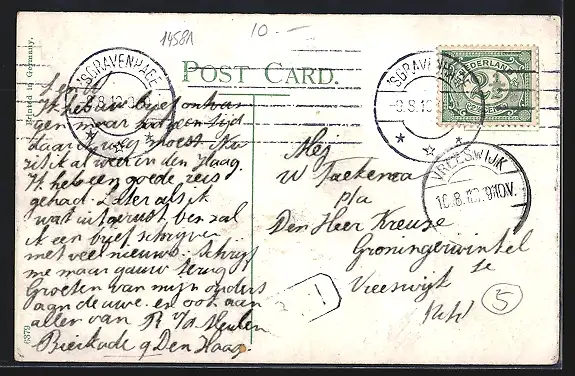 14581
10.—
Printed in Germany.
POST CARD.
'SGRAVENHAGE
'SGRAVENHAGE
NEDERLAND
2½
VREESWIJK
10.8.12. 9-10V.
Ik heb uw brief ontvan
gen maar had geen tijd
daar ik weg moest. Nu
zit ik al weer in den Haag.
Ik heb een goede reis
gehad. Later als ik
wat uitgerust ben zal
ik een brief schrijven
met veel nieuws. Schrijf
me maar gauw terug
Groeten van mijn ouders
aan de uwe en ook aan
allen van R v/d Meulen
Bierkade 9 Den Haag.
Mej
W Taekema
p/a
Den Heer Kreuze
Groningerwinkel
te
Vreeswijk
5
6379